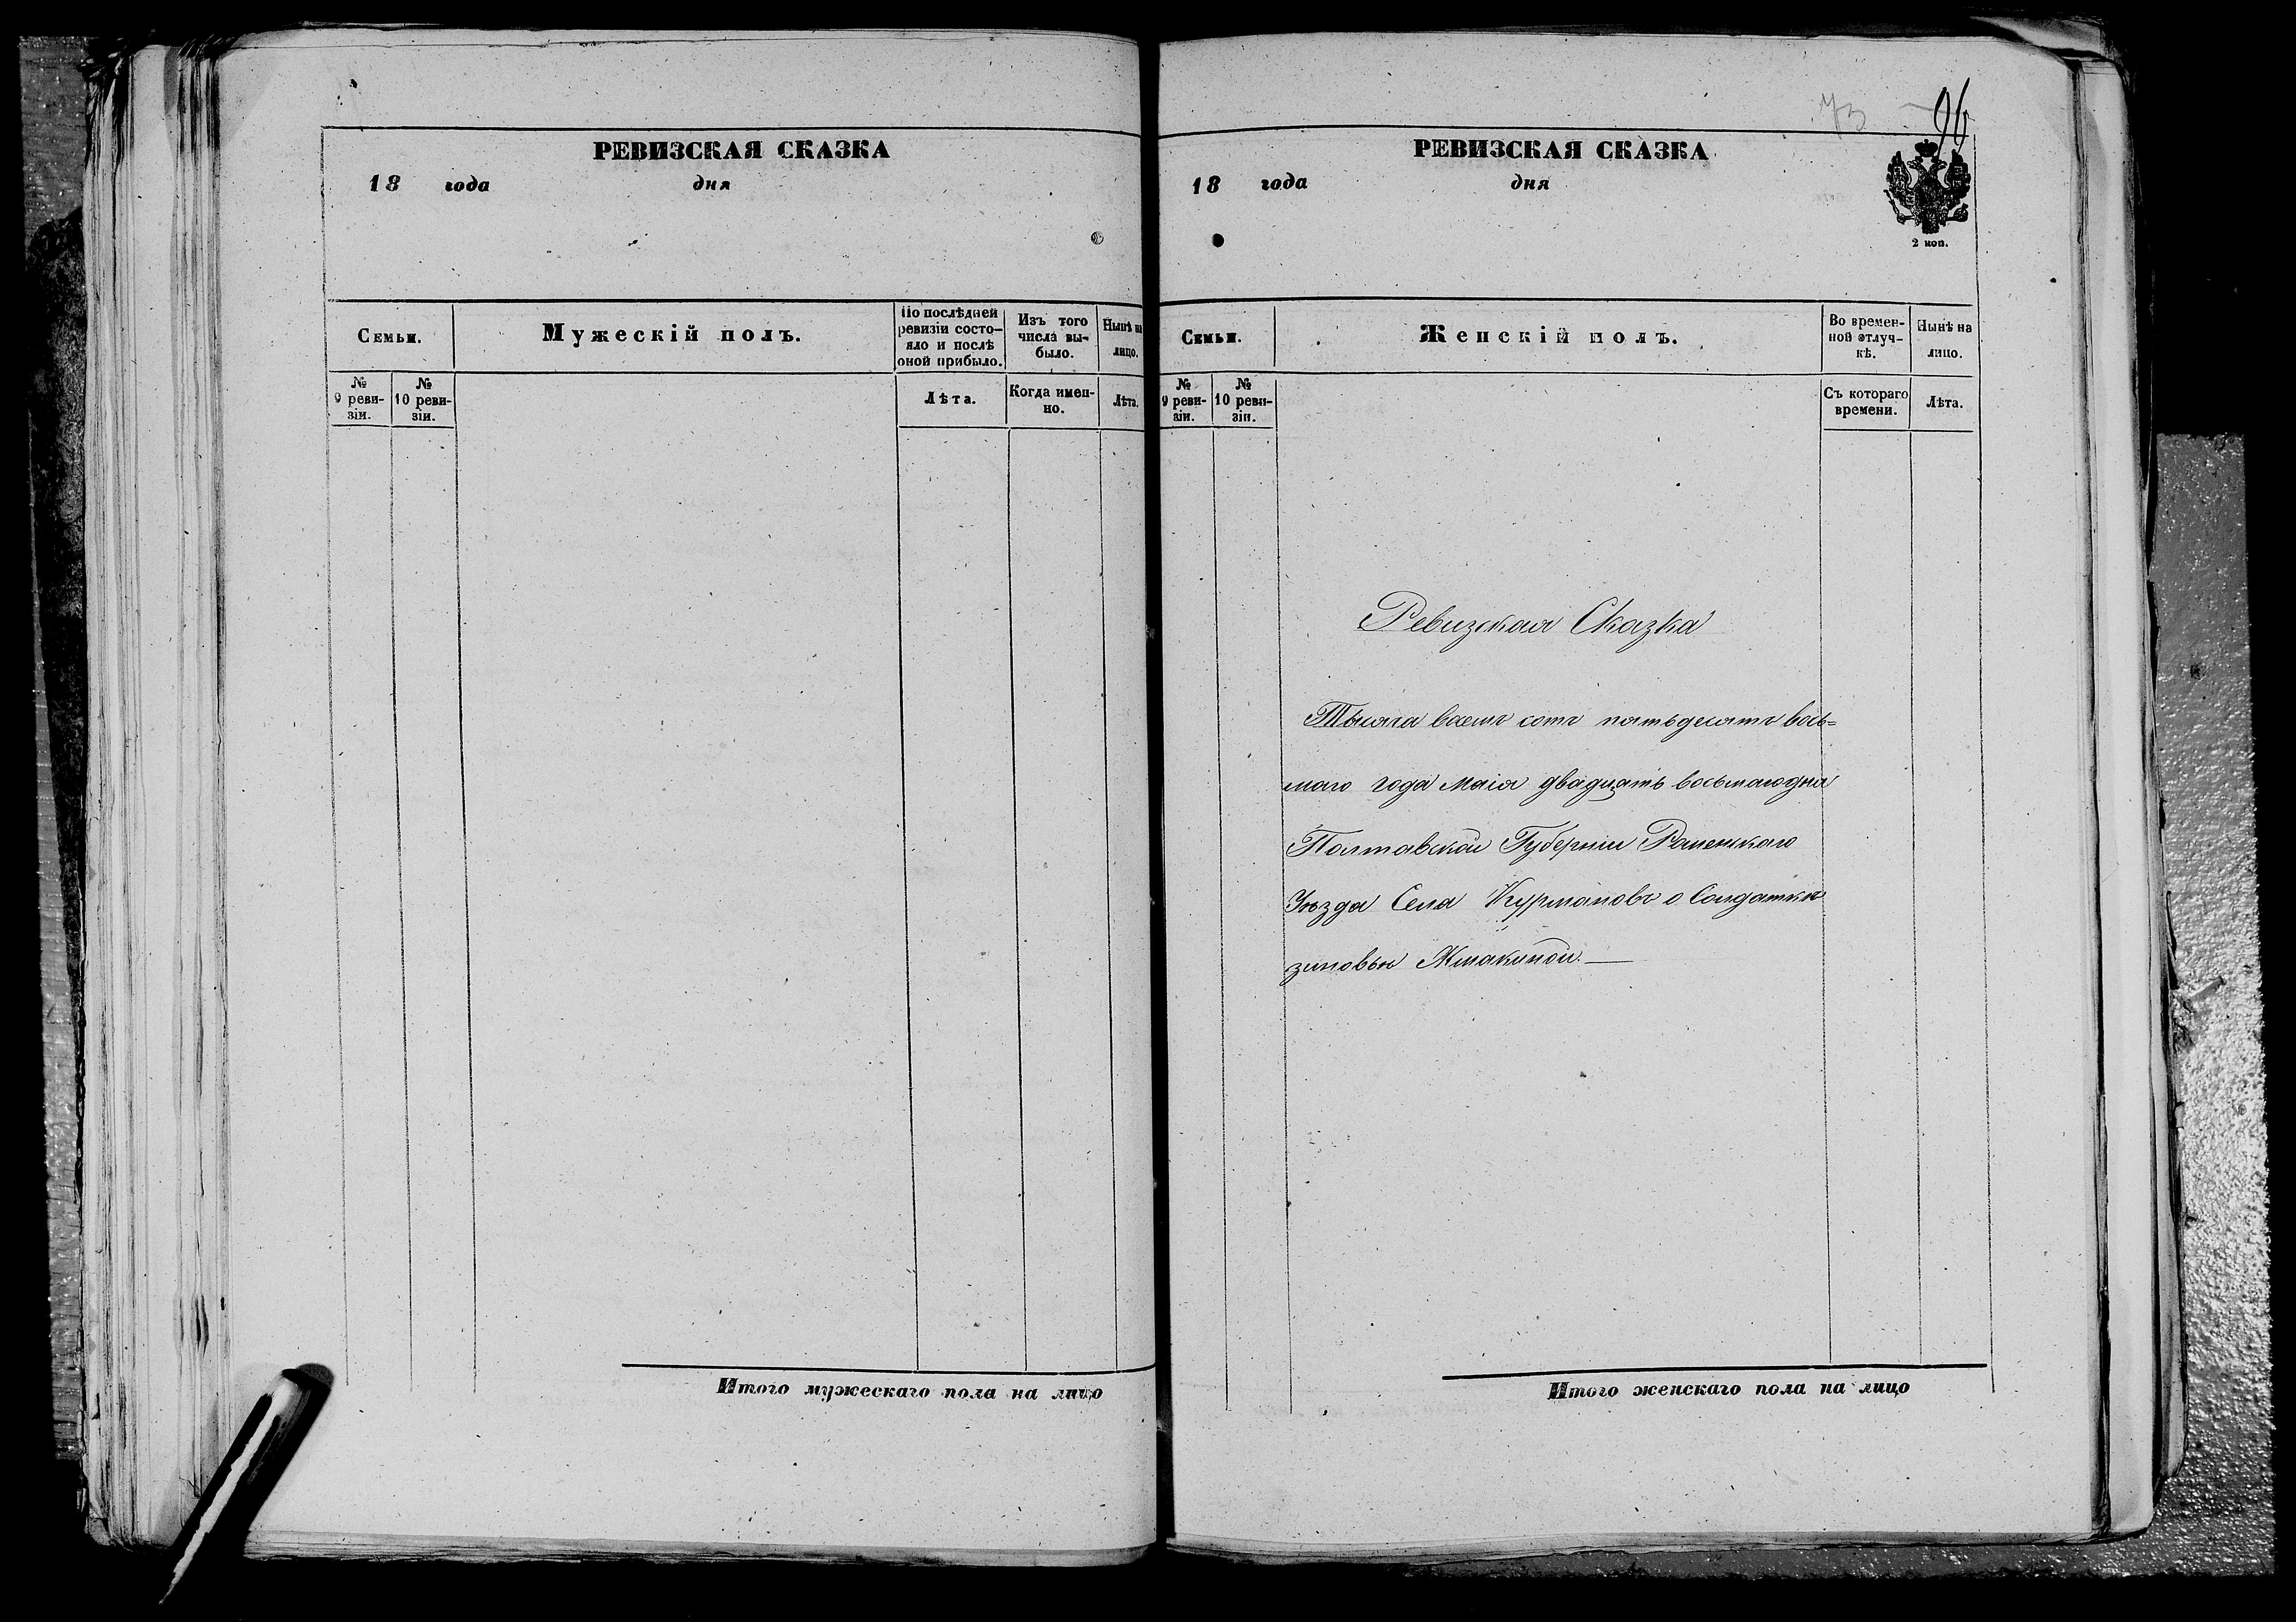 РЕВИЗСКАЯ СКАЗКА
18 года дня
Семьи.
Мужескій полъ.
По послѣдней ревизіи состо-
яло и послѣ оной прибыло.
Изъ того числа вы-
было.
Нынѣ на лицо.
№ 9 реви-
зіи.
№ 10 реви-
зіи.
Лѣта.
Когда имен-
но.
Лѣта.
Итого мужескаго пола на лицо
73
96
РЕВИЗСКАЯ СКАЗКА
18 года дня
2 коп.
Семьи.
Женскій полъ.
Во времен-
ной отлуч-
кѣ.
Нынѣ на
лицо.
№ 9 реви-
зіи.
№ 10 реви-
зіи.
Съ котораго
времени.
Лѣта.
Ревизская Сказка
Тысяча восемъ сотъ пятьдесятъ вось=
маго года Маія двадцать восьмаго дня
Полтавской Губерніи Роменскаго
Уѣзда Села Курмановъ о Солдаткѣ
зиновьи
Итого женскаго пола на лицо